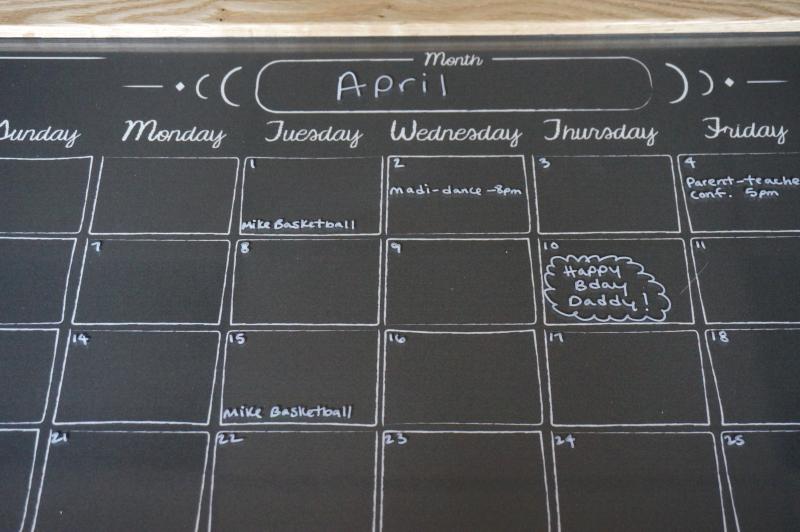 Month
April
Sunday Monday Tuesday Wednesday Thursday Friday
1 2 3 4
madi-dance -8pm
Parent-teache
conf. 5pm
Mike Basketball
7 8 9 10 11
Happy
Bday
Daddy!
14 15 16 17 18
Mike Basketball
21 22 23 24 25